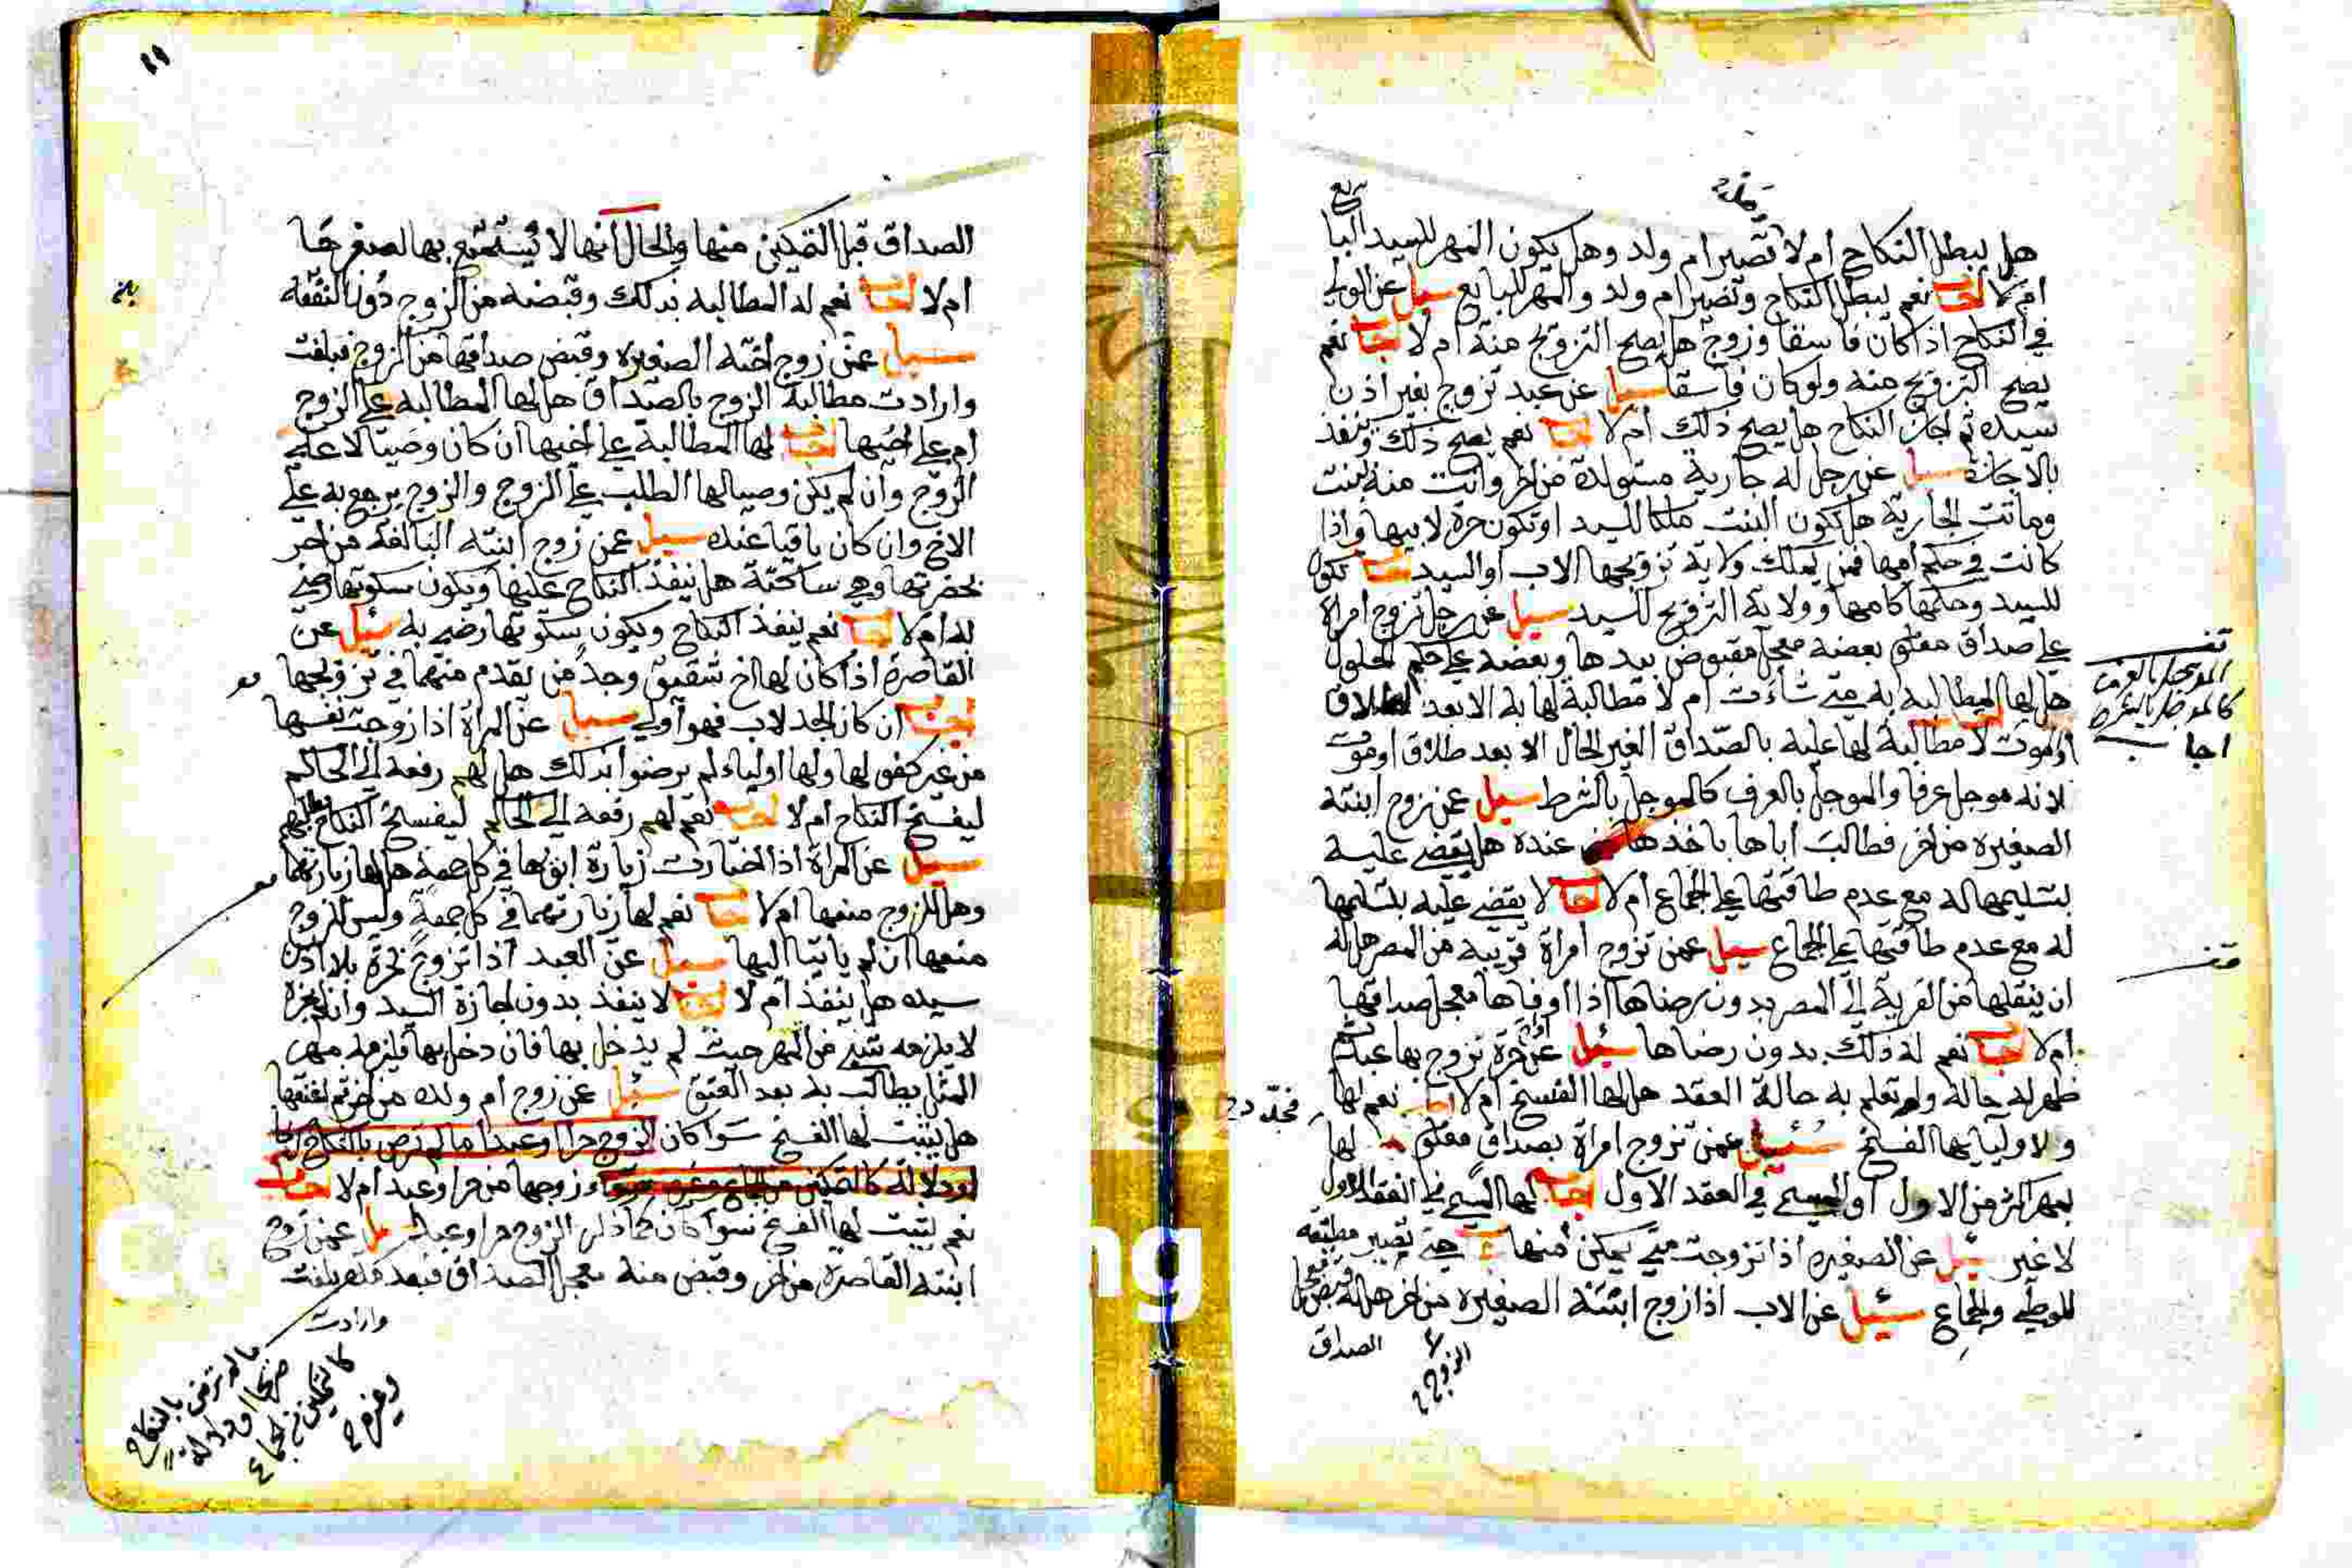 هل يبطل النكاح ام لا وتصير ام ولد وهل يكون المهر للسيد البايع
ام لا اجاب نعم يبطل النكاح وتصير ام ولد والمهر للبايع سيل عن الولي
في النكاح اذا كان فاسقا وزوج هل يصح التزويج منه ام لا اجاب نعم
يصح التزويج منه ولو كان فاسقا سيل عن عبد تزوج بغير اذن
سيده ثم اجاز النكاح هل يصح ذلك ام لا اجاب نعم يصح ذلك وينفذ
بالاجازة سيل عن رجل له جارية مستولدة من اخر واتت منه ببنت
وماتت الجارية هل تكون البنت ملكا للسيد او تكون حرة لابيها واذا
كانت في حكم امها فمن يملك ولاية تزويجها الاب او السيد اجاب تكون
للسيد وحكمها كامها وولاية التزويج للسيد سيل عن رجل تزوج امراة
على صداق معلوم بعضه معجل مقبوض بيدها وبعضه على حكم الحلول
هل لها المطالبة به متى شاءت ام لا مطالبة لها به الا بعد الطلاق
او الموت لا مطالبة لها عليه بالصداق الغير الحال الا بعد طلاق او موت
لانه موجل عرفا والموجل بالعرف كالموجل بالشرط سيل عمن زوج ابنته
الصغيره من اخر فطالب اباها باخدها عنده هل يقضى عليه
بتسليمها له مع عدم طاقتها على الجماع ام لا اجاب لا يقضى عليه بتسليمها
له مع عدم طاقتها على الجماع سيل عمن تزوج امراة قريبه من المصر هل له
ان ينقلها من القرية الى المصر بدون رضاها اذا اوفاها معجل صداقها
ام لا اجاب نعم له ذلك بدون رضاها سئيل عن حرة تزوج بها عبد ثم
ظهر له حاله ولم تعلم به حالة العقد هل لها الفسخ ام لا اجاب نعم لها
ولاوليايها الفسخ سئيل عمن تزوج امراة بصداق معلوم لها
بمهر اكثر من الاول او المسمى في العقد الاول اجاب لها المسمى في العقد الاول
لا غير سيل عن الصغيره اذا تزوجت متى يمكن منها حتى تصير مطيقه
للوطي والجماع سئيل عن الاب اذا زوج ابنته الصغيره من اخر هل له قبض معجل
الصداق
الزوج
الموجل بالعرف
كالموجل بالشرط
اجاب
الصداق قبل التمكين منها والحال انها لا يستمتع بها لصغرها
ام لا اجاب نعم له المطالبه بدلك وقبضه من الزوج دون النفقه
سيل عمن زوج اخته الصغيره وقبض صداقها من الزوج فبلغت
وارادت مطالبة الزوج بالصداق هل لها المطالبه على الزوج
ام على اخيها اجاب لها المطالبة على اخيها ان كان وصيا لا على
الزوج وان لم يكن وصيا لها الطلب على الزوج والزوج يرجع به على
الاخ وان كان باقيا عنده سيل عمن زوج ابنته البالغة من اخر
بحضرتها وهي ساكتة هل ينفذ النكاح عليها ويكون سكوتها رضي
به ام لا اجاب نعم ينفذ النكاح ويكون سكوتها رضى به سئيل عن
القاصرة اذا كان لها اخ شقيق وجد من يقدم منهما في تزويجها
اجاب ان كان الجد لاب فهو اولى سيل عن المراة اذا زوجت نفسها
من غير كفو لها ولها اولياء لم يرضوا بدلك هل لهم رفعه الى الحاكم
ليفسخ النكاح ام لا اجاب نعم لهم رفعه الى الحاكم ليفسخ النكاح
سيل عن المراة اذا اختارت زيارة ابويها في كل جمعة هل لها زيارتهما
وهل للزوج منعها ام لا اجاب نعم لها زيارتهما في كل جمعة وليس للزوج
منعها ان لم ياتيا اليها سيل عن العبد اذا تزوج بحرة بلا اذن
سيده هل ينفذ ام لا اجاب لا ينفذ بدون اجازة السيد وان لم يجزه
لا يلزمه شيء من المهر حيث لم يدخل بها فان دخل بها فيلزمه مهر
المثل يطالب به بعد العتق سئيل عمن زوج ام ولده من اخر ثم اعتقها
هل يثبت لها الفسخ سوا كان الزوج حرا او عبدا ما لم ترض بالنكاح
او دلالة كالتمكين من الجماع وغيره زوجها من حر او عبد ام لا اجاب
نعم يثبت لها الفسخ سوا كان كما ذكر الزوج حرا او عبدا سيل عمن زوج
ابنته القاصرة من اخر وقبض منه معجل الصداق فبعد بلغت
وارادت
ما لم ترض بالنكاح
صريحا او دلالة
كالتمكين من الجماع
وغيره